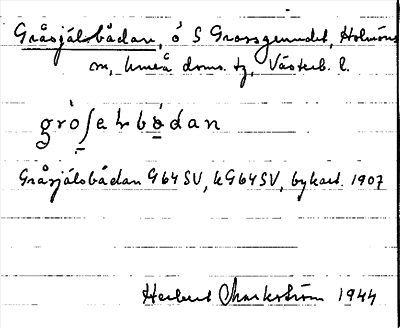 Gråsjälsbådan, ö S Grossgrundet, Holmöns
sn, Umeå doms. tg, Västerb. l.
gròʃęlsbǫ́dan
Gråsjälsbådan G64SV, kG64SV, bykart. 1907
Herbert Markström 1944